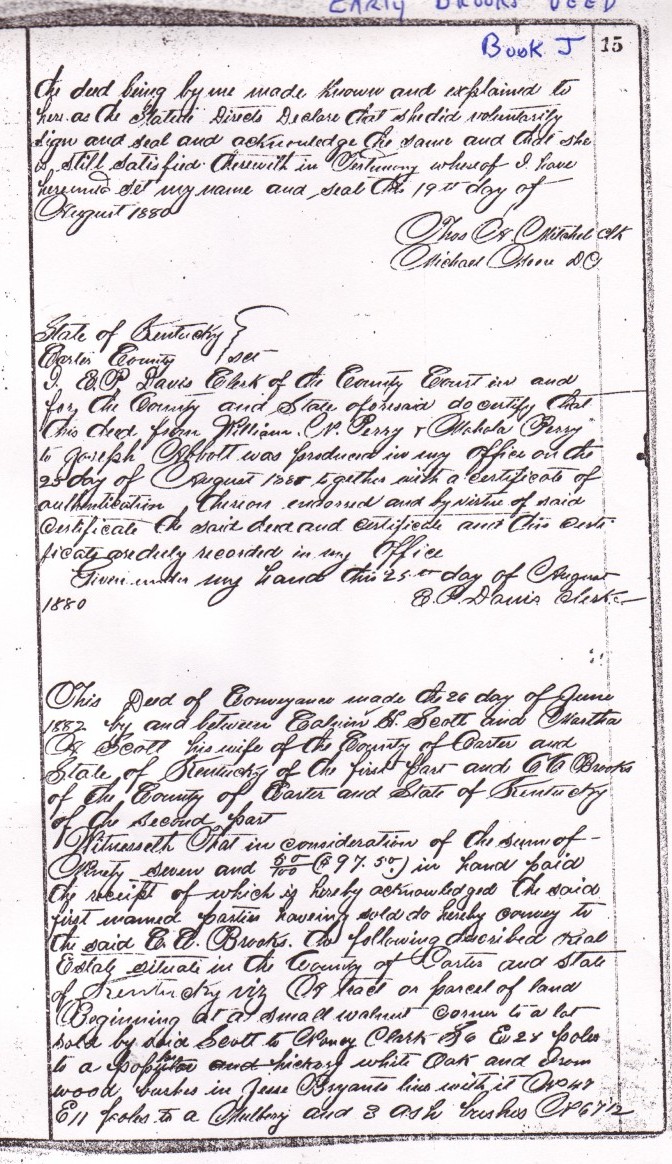 EARLY BROOKS DEED
BOOK J 15
the deed being by me made Known and explained to
her as the Statute Directs Declare that she did voluntarily
sign and seal and acknowledge the same and that she
is still satisfied therewith in Testimony whereof I have
hereunto set my name and seal this 19th day of
August 1880
Thos A. Mitchel Clk
Michael DC
State of Kentucky
Carter County sct
I. E. P. Davis Clerk of the County Court in and
for the County and State aforesaid do certify that
this deed from William N. Perry & Mahala Perry
to Joseph Abbott was produced in my office on the
25 day of August 1880 together with a certificate of
authentication thereon endorsed and by virtue of said
Certificate the said deed and certificate and this certi-
ficate are duly recorded in my Office
Given under my hand this 25th day of August
1880 E. P. Davis Clerk
This Deed of Conveyance made the 26 day of June
1882 by and between Calvin Scott and Martha
A Scott his wife of the County of Carter and
State of Kentucky of the first part and Brooks
of the County of Carter and State of Kentucky
of the Second part
Witnesseth That in consideration of the sum of
Ninety seven and 50/100 ($97.50) in hand paid
the receipt of which is hereby acknowledged the said
first named parties haveing sold do hereby convey to
the said Brooks. the following described Real
Estate situate in the County of Carter and State
of Kentucky viz A tract or parcel of land
Beginning at a small walnut corner to a lot
sold by said Scott to Clark E 28 poles
to a and hickory white Oak and
wood bushes in Jesse Bryants line with it
E 11 poles to a Mulberry and 3 ash bushes